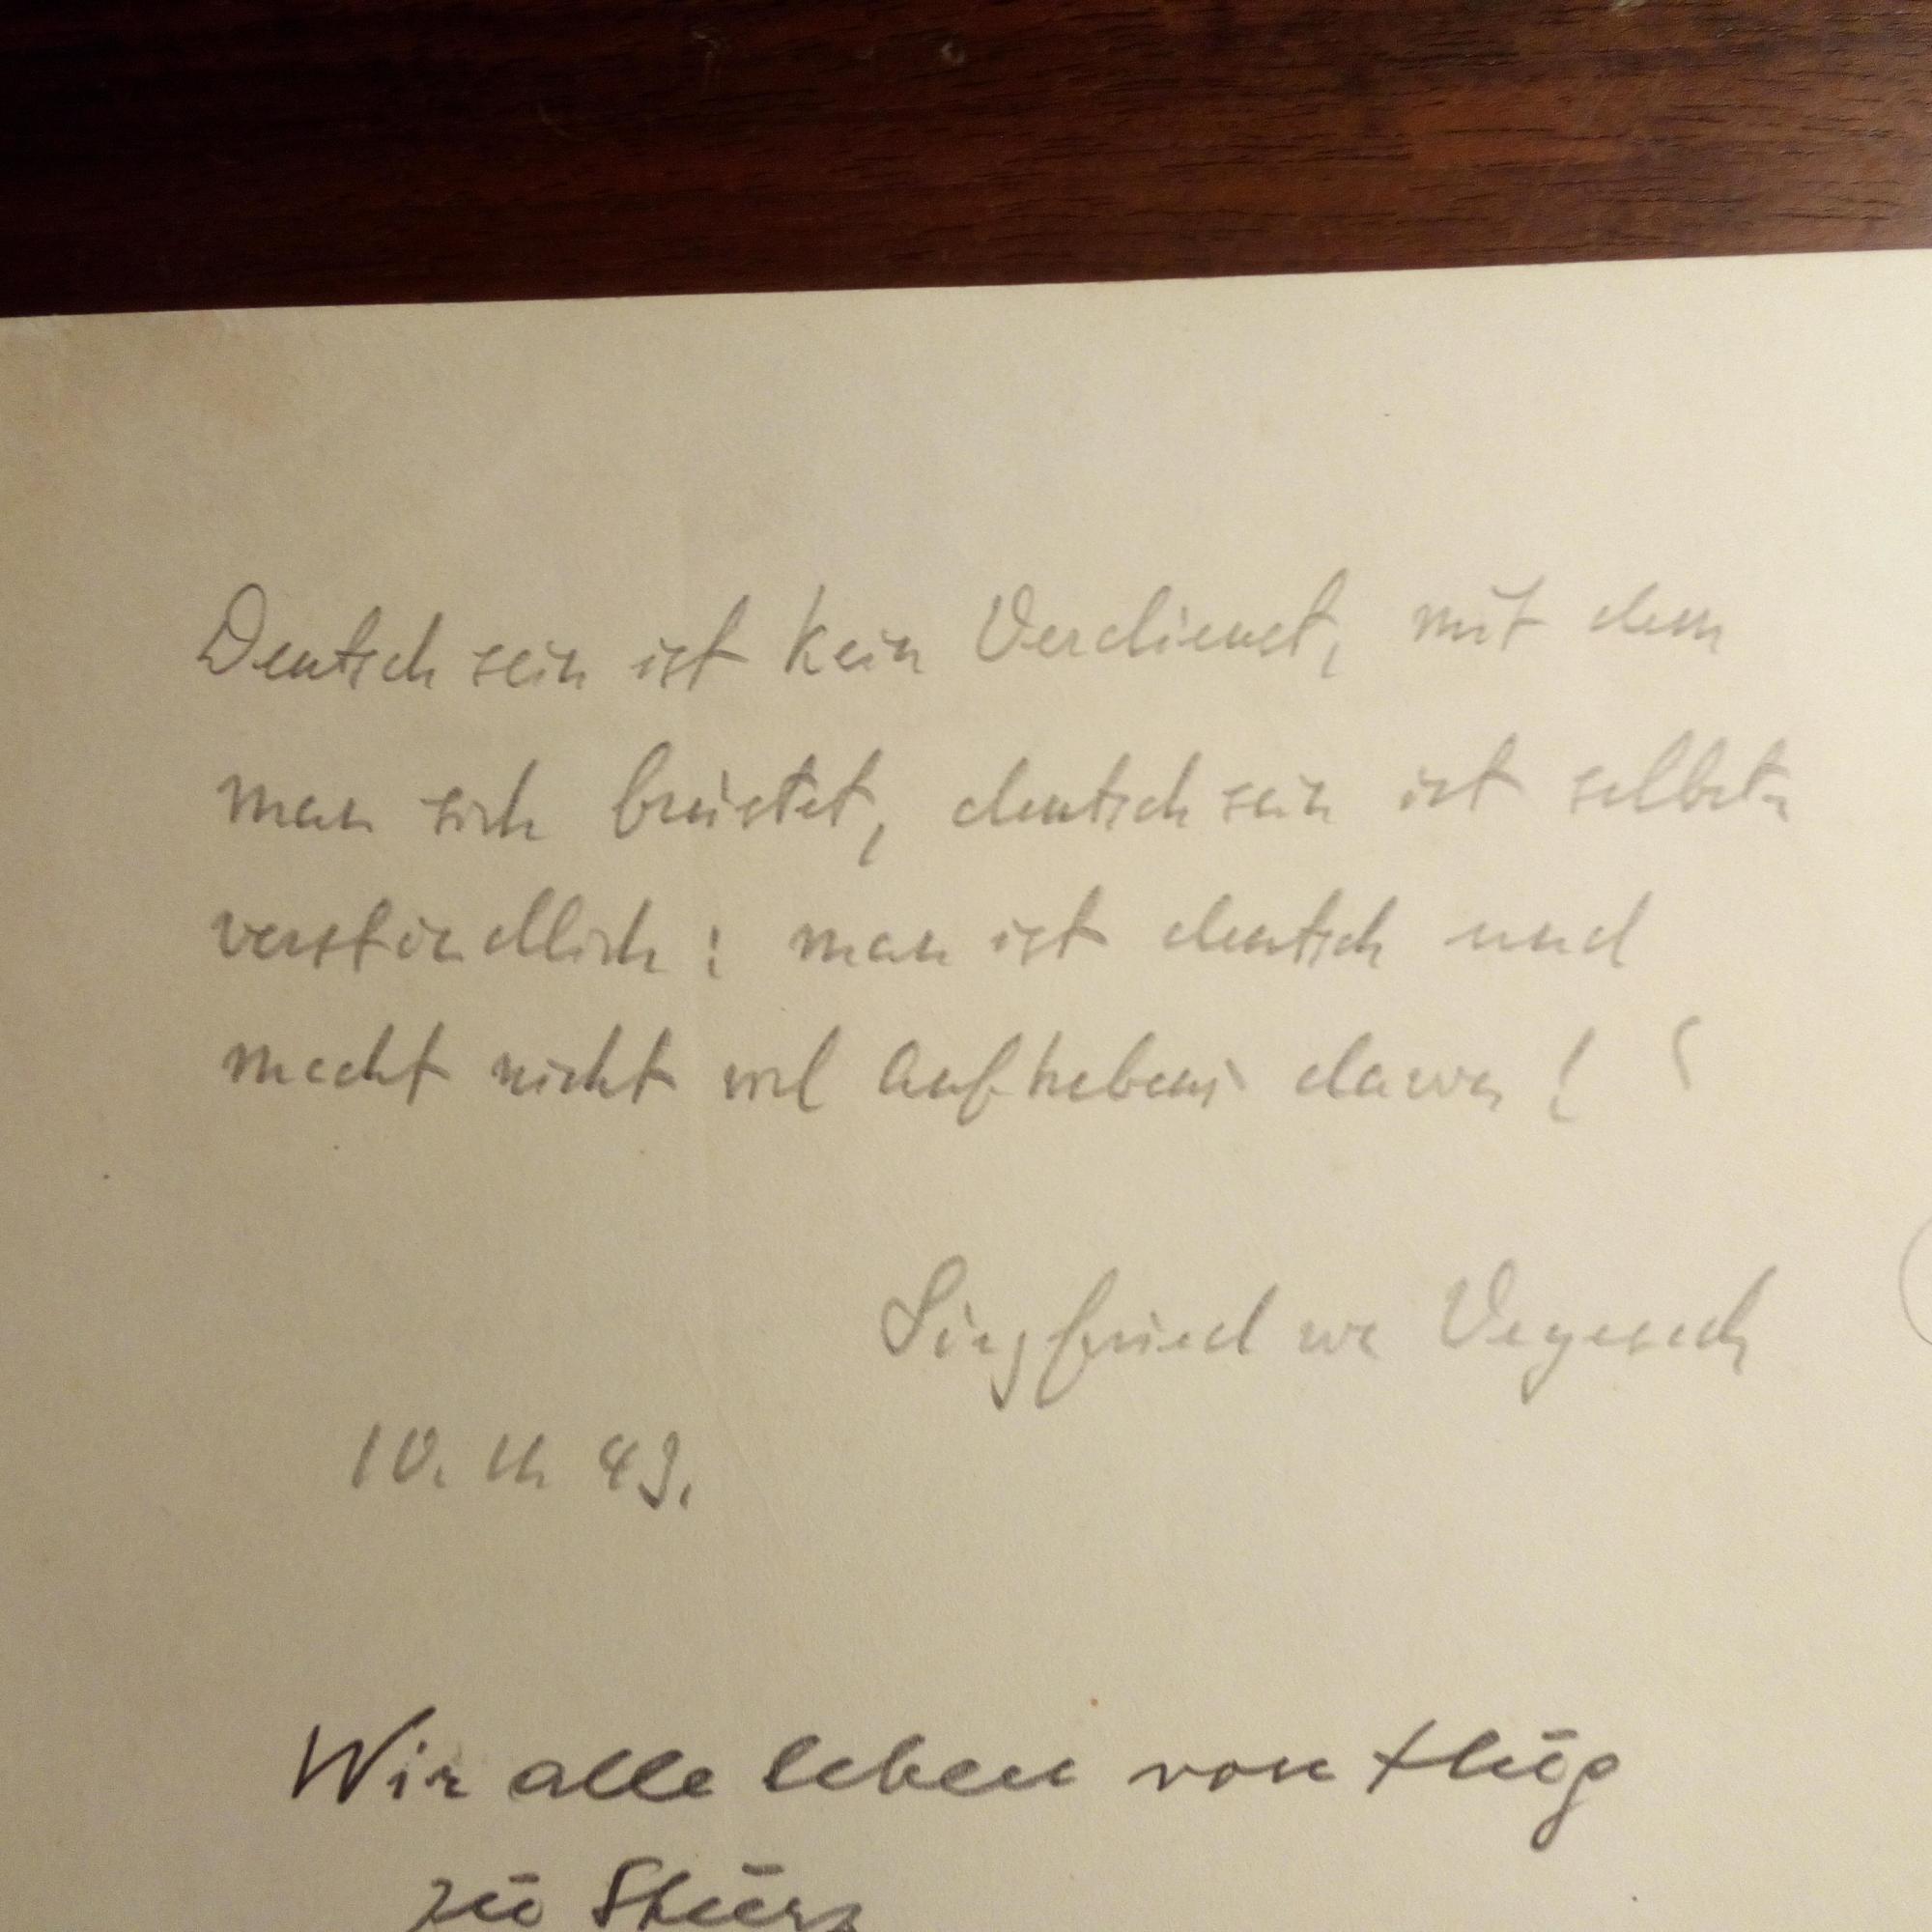 Deutsch sein ist kein Verdienst, mit dem
man sich brüstet, deutsch sein ist selbst-
verständlich: man ist deutsch und
macht nicht viel Aufhebens davon!
Siegfried von Vegesack
10. 11. 43.
Wir alle leben von Flug
zu Sturz